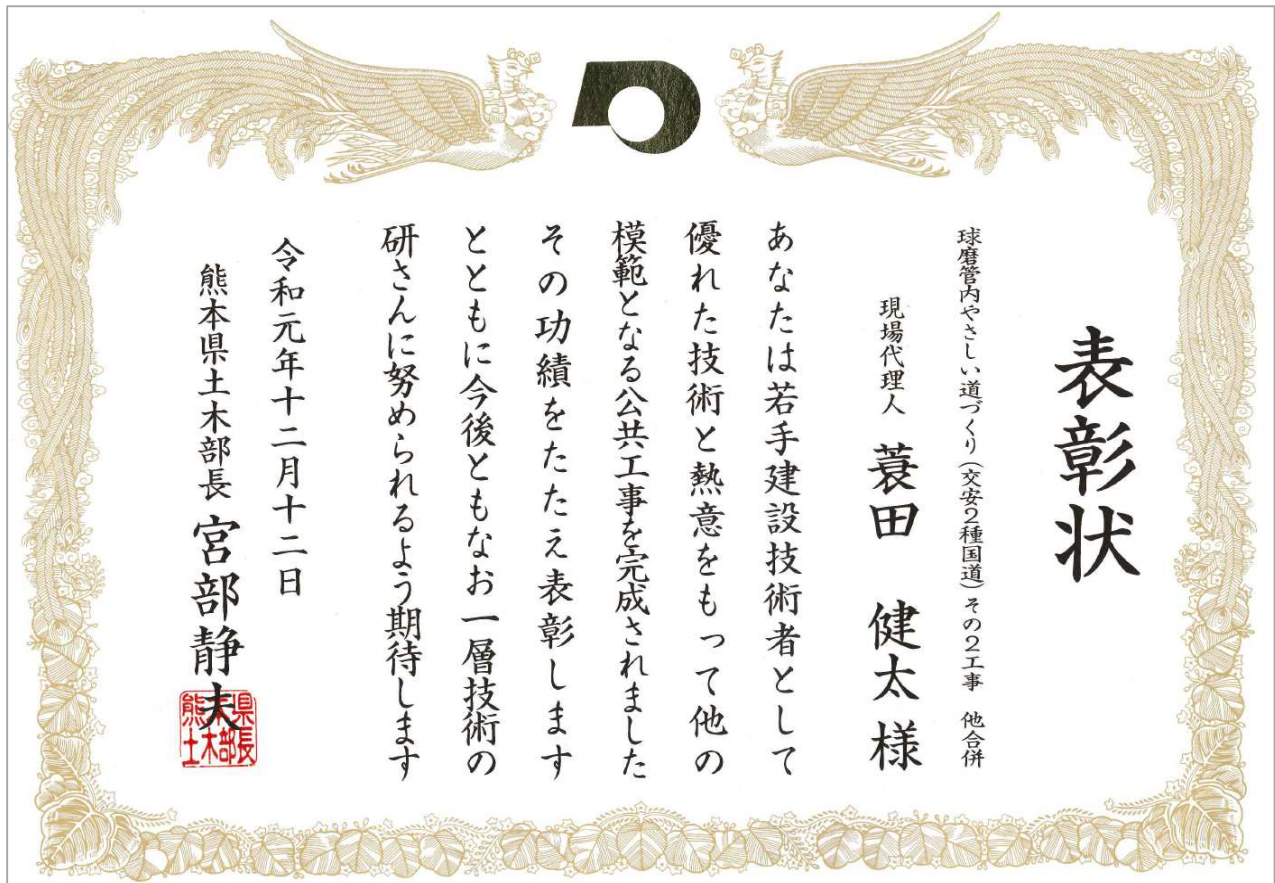 表彰状
球磨管内やさしい道づくり(交安2種国道)その2工事 他合併
現場代理人 蓑田 健太 様
あなたは若手建設技術者として
優れた技術と熱意をもって他の
模範となる公共工事を完成されました
その功績をたたえ表彰します
とともに今後ともなお一層技術の
研さんに努められるよう期待します
令和元年十二月十二日
熊本県土木部長 宮部静夫
熊本県
土木部長